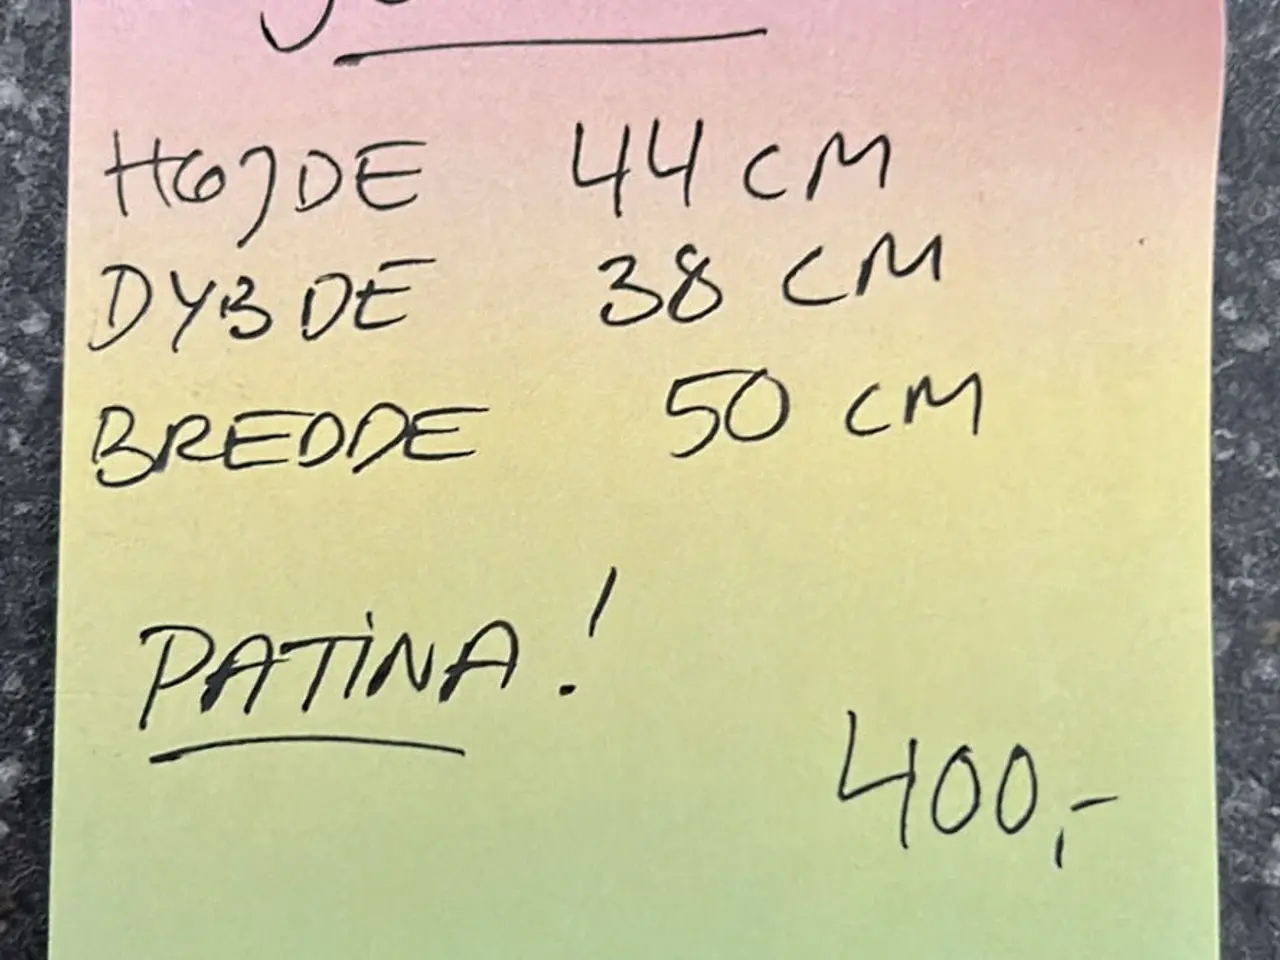 HØJDE 44 CM
DYBDE 38 CM
BREDDE 50 CM
PATINA!
400,-